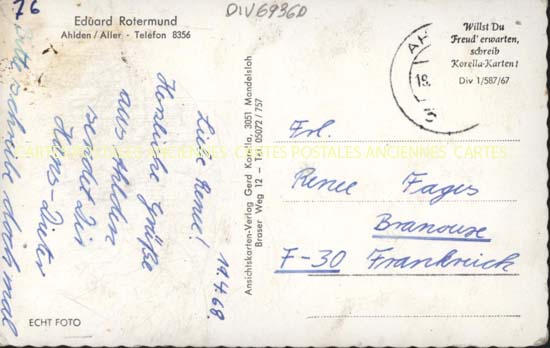 76
DIV6936D
Eduard Rotermund
Ahlden / Aller - Telefon 8356
Willst Du
Freud' erwarten,
schreib
Korella-Karten!
Div 1/587/67
AH
18
19.4.68.
Liebe Renee!
Herzliche Grüße
aus Ahlden
sendet Dir
Hans-Dieter
Bitte schreib doch mal
Ansichtskarten-Verlag Gerd Korella, 3051 Mandelsloh
Braser Weg 12 — Tel. 05072 / 757
Frl.
Renee Fages
Branouze
F-30 Frankreich
ECHT FOTO
CARTES POSTALES ANCIENNES CARTES POSTALES ANCIENNES CARTES